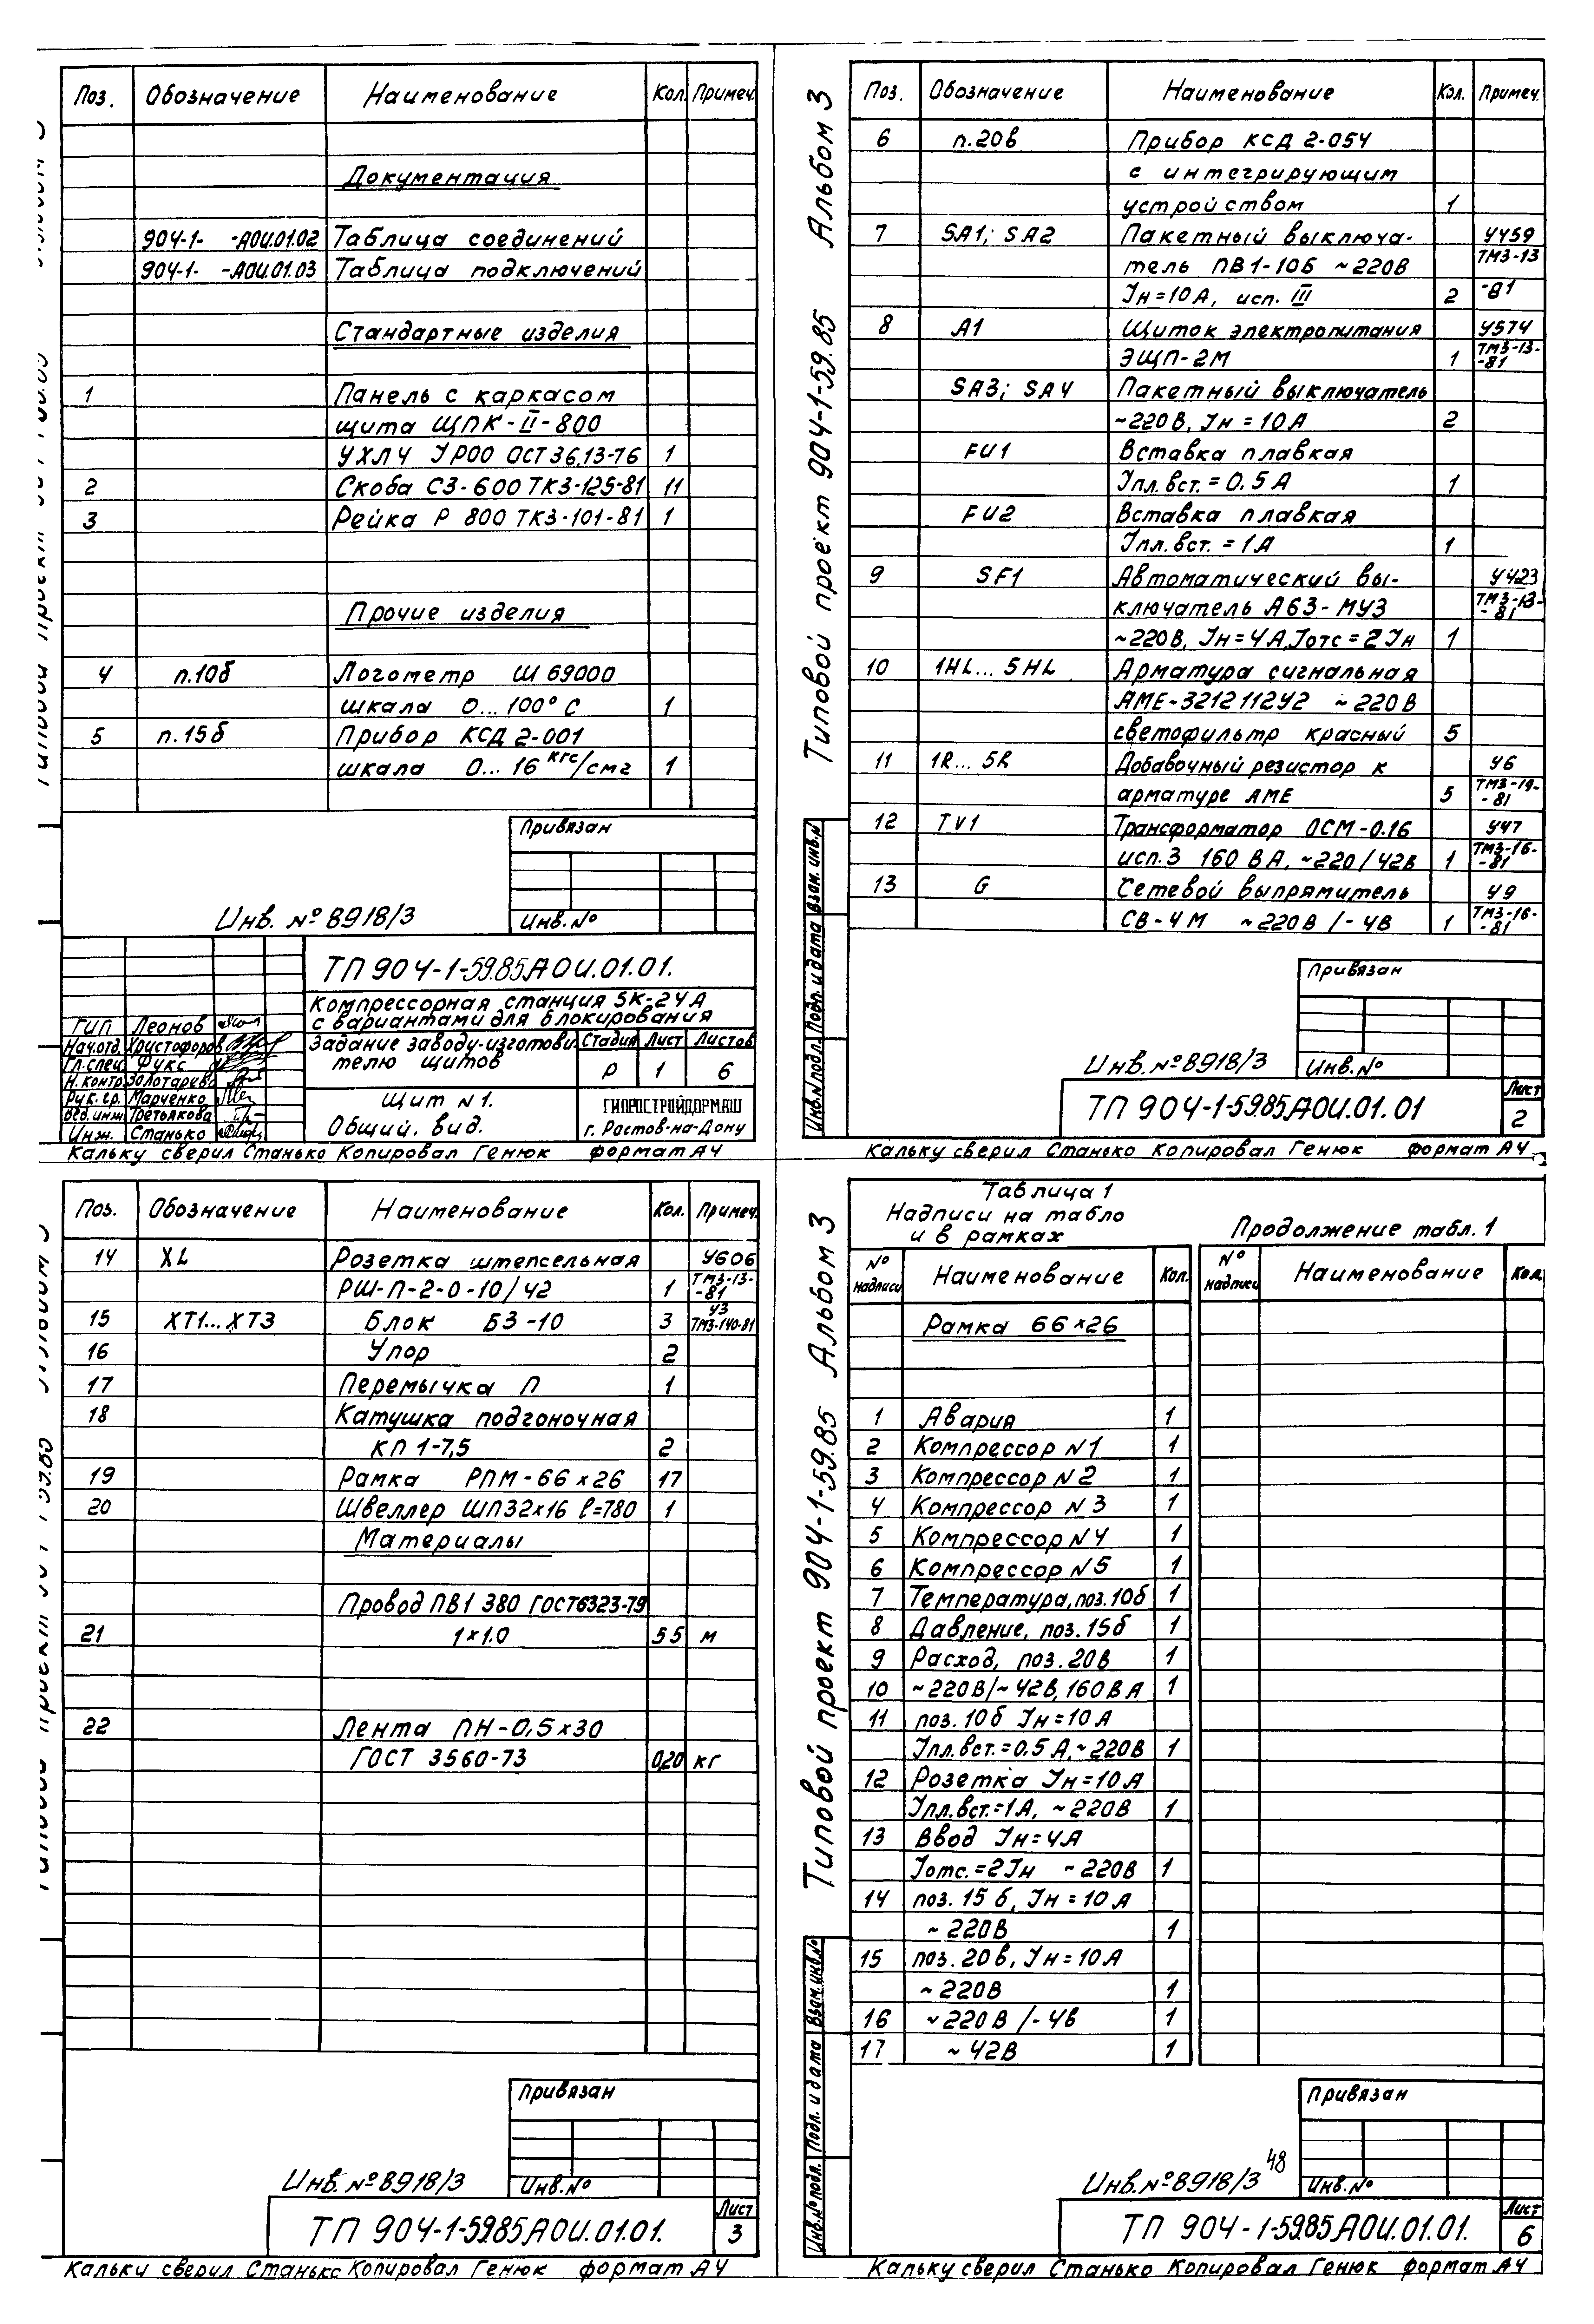 Поз. Обозначение Наименование Кол. Примеч.
Документация
904-1- -АОИ.01.02 Таблица соединений
904-1- -АОИ.01.03 Таблица подключений
Стандартные изделия
1 Панель с каркасом
щита ЩПК-II-800
УХЛ4 УР00 ОСТ 36.13-76 1
2 Скоба СЗ-600 ТК3-125-81 11
3 Рейка Р 800 ТК3-101-81 1
Прочие изделия
4 п.10б Логометр Ш 69000
шкала 0...100°С 1
5 п.15б Прибор КСД 2-001
шкала 0...16 кгс/см2 1
Привязан
Инв.№
Инв. №8918/3
ТП 904-1-59.85 АОИ.01.01.
Компрессорная станция 5К-24А
с вариантами для блокирования
ГИП Леонов
Нач.отд. Христофоров
Гл.спец. Фукс
Н.контр. Золотарева
Рук.гр. Марченко
Вед.инж. Третьякова
Инж. Станько
Задание заводу-изготови-
телю щитов
Стадия Лист Листов
Р 1 6
Щит N1.
Общий вид.
ГИПРОСТРОЙДОРМАШ
г. Ростов-на-Дону
Кальку сверил Станько Копировал Генюк формат А4
Типовой проект 904-1-59.85 Альбом 3
Поз. Обозначение Наименование Кол. Примеч.
6 п.20в Прибор КСД 2-054
с интегрирующим
устройством 1
7 SA1; SA2 Пакетный выключа- У459
тель ПВ1-10Б ~220В ТМ3-13
Iн=10А, исп. III 2 -81
8 А1 Щиток электропитания У574
ЭЩП-2М 1 ТМ3-13-
-81
SA3; SA4 Пакетный выключатель
~220В, Iн=10А 2
FU1 Вставка плавкая
Iпл.вст.=0.5А 1
FU2 Вставка плавкая
Iпл.вст.=1А 1
9 SF1 Автоматический вы- У423
ключатель А63-МУ3 ТМ3-13-
-81
~220В, Iн=4А, Iотс=2Iн 1
10 1HL...5HL Арматура сигнальная
АМЕ-3212112У2 ~220В
светофильтр красный 5
11 1R...5R Добавочный резистор к У6
арматуре АМЕ 5 ТМ3-19-
-81
12 TV1 Трансформатор ОСМ-0.16 У47
исп.3 160 ВА, ~220/42В 1 ТМ3-16-
-81
13 G Сетевой выпрямитель У9
СВ-4М ~220В/-4В 1 ТМ3-16-
-81
Инв.N подл. Подп. и дата Взам. инв.N
Привязан
Инв.№
Инв.№8918/3
ТП 904-1-59.85 АОИ.01.01
Лист
2
Кальку сверил Станько Копировал Генюк формат А4
Поз. Обозначение Наименование Кол. Примеч.
14 XL Розетка штепсельная У606
РШ-П-2-0-10/42 1 ТМ3-13-
-81
15 ХТ1...ХТ3 Блок БЗ-10 3 У3
ТМ3-140-81
16 Упор 2
17 Перемычка П 1
18 Катушка подгоночная
КП 1-7,5 2
19 Рамка РПМ-66×26 17
20 Швеллер ШП32×16 l=780 1
Материалы
Провод ПВ1 380 ГОСТ6323-79
21 1×1.0 55 м
22 Лента ПН-0,5×30
ГОСТ 3560-73 0,20 кг
Привязан
Инв.№
Инв.№8918/3
ТП 904-1-59.85 АОИ.01.01.
Лист
3
Кальку сверил Станько Копировал Генюк формат А4
Типовой проект 904-1-59.85 Альбом 3
Таблица 1
Надписи на табло
и в рамках
Продолжение табл. 1
№ надписи Наименование Кол. № надписи Наименование Кол.
Рамка 66×26
1 Авария 1
2 Компрессор N1 1
3 Компрессор N2 1
4 Компрессор N3 1
5 Компрессор N4 1
6 Компрессор N5 1
7 Температура, поз.10б 1
8 Давление, поз.15б 1
9 Расход, поз.20в 1
10 ~220В/~42В, 160ВА 1
11 поз.10б Iн=10А
Iпл.вст.=0.5А, ~220В 1
12 Розетка Iн=10А
Iпл.вст.=1А, ~220В 1
13 Ввод Iн=4А
Iотс.=2Iн ~220В 1
14 поз.15б, Iн=10А
~220В 1
15 поз.20в, Iн=10А
~220В 1
16 ~220В/-4В 1
17 ~42В 1
Инв.№ подл. Подп. и дата Взам.инв.№
Привязан
Инв.№
Инв.№8918/3
48
ТП 904-1-59.85 АОИ.01.01.
Лист
6
Кальку сверил Станько Копировал Генюк формат А4